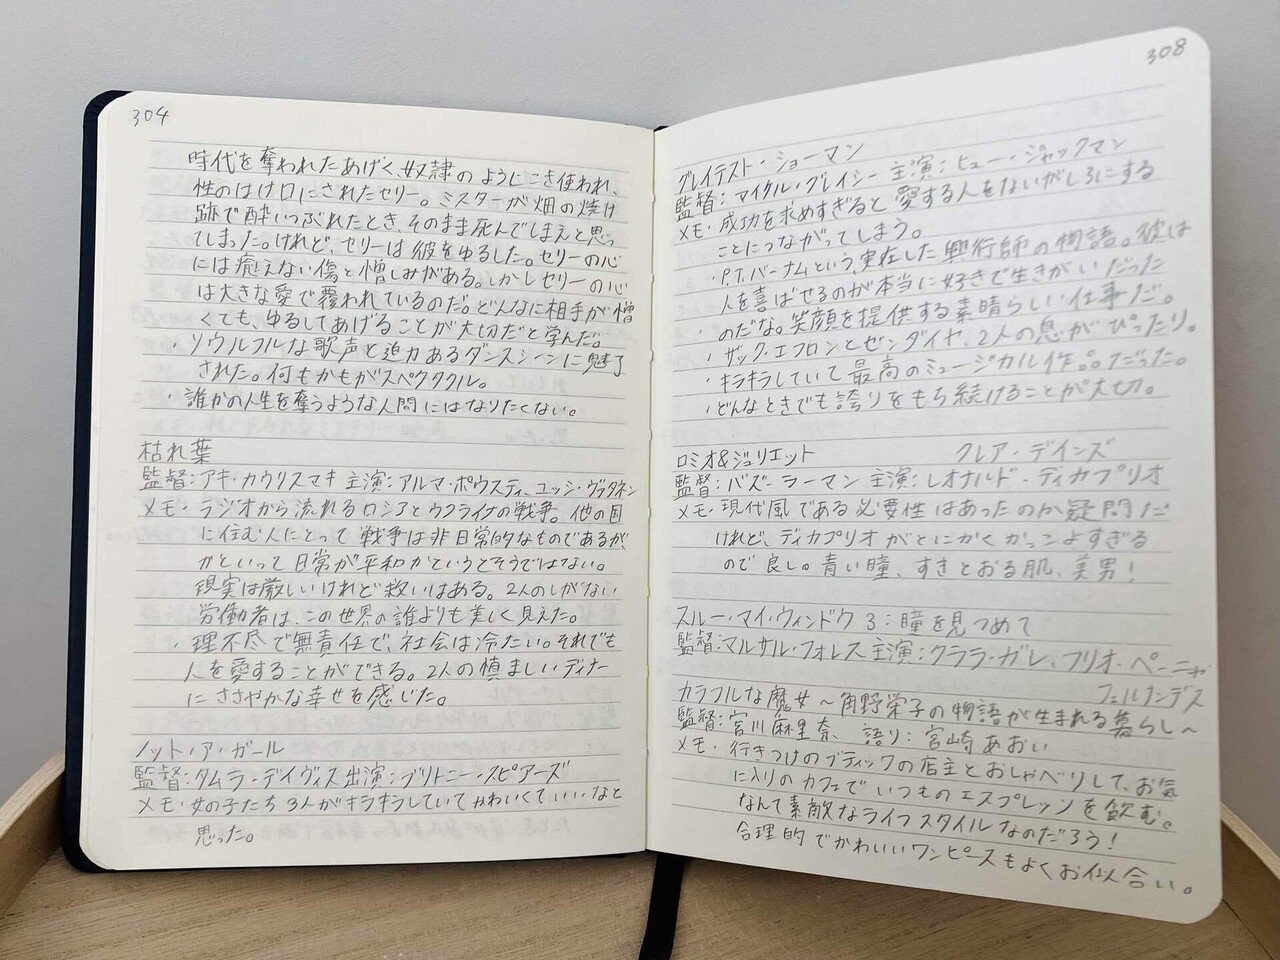 304
時代を奪われたあげく、奴隷のようにこき使われ、
性のはけ口にされたセリー。ミスターが畑の焼け
跡で酔いつぶれたとき、そのまま死んでしまえと思っ
てしまった。けれど、セリーは彼をゆるした。セリーの心
には癒えない傷と憎しみがある。しかしセリーの心
は大きな愛で覆われているのだ。どんなに相手が憎
くても、ゆるしてあげることが大切だと学んだ。
・ソウルフルな歌声と迫力あるダンスシーンに魅了
された。何もかもがスペクタクル。
・誰かの人生を奪うような人間にはなりたくない。
枯れ葉
監督:アキ・カウリスマキ 主演:アルマ・ポウスティ、ユッシ・ヴァタネン
メモ・ラジオから流れるロシアとウクライナの戦争。他の国
に住む人にとって戦争は非日常的なものであるが、
かといって日常が平和かというとそうではない。
現実は厳しいけれど救いはある。2人のしがない
労働者は、この世界の誰よりも美しく見えた。
・理不尽で無責任で、社会は冷たい。それでも
人を愛することができる。2人の慎ましいディナー
にささやかな幸せを感じた。
ノット・ア・ガール
監督:タムラ・デイヴィス 出演:ブリトニー・スピアーズ
メモ・女の子たち3人がキラキラしていてかわいくていいなと
思った。
308
グレイテスト・ショーマン
監督:マイケル・グレイシー 主演:ヒュー・ジャックマン
メモ・成功を求めすぎると愛する人をないがしろにする
ことにつながってしまう。
・P.T.バーナムという実在した興行師の物語。彼は
人を喜ばせるのが本当に好きで生きがいだった
のだな。笑顔を提供する素晴らしい仕事だ。
・ザック・エフロンとゼンダイヤ、2人の息がぴったり。
・キラキラしていて最高のミュージカル作品だった。
・どんなときでも誇りをもち続けることが大切。
ロミオ&ジュリエット クレア・デインズ
監督:バズ・ラーマン 主演:レオナルド・ディカプリオ
メモ・現代風である必要性はあったのか疑問だ
けれど、ディカプリオがとにかくかっこよすぎる
ので良し。青い瞳、すきとおる肌、美男!
スルー・マイ・ウィンドウ3:瞳を見つめて
監督:マルサル・フォレス 主演:クララ・ガレ、フリオ・ペーニャ
フェルナンデス
カラフルな魔女～角野栄子の物語が生まれる暮らし～
監督:宮川麻里奈 語り:宮崎あおい
メモ・行きつけのブティックの店主とおしゃべりして、お気
に入りのカフェでいつものエスプレッソを飲む。
なんて素敵なライフスタイルなのだろう!
合理的でかわいいワンピースもよくお似合い。